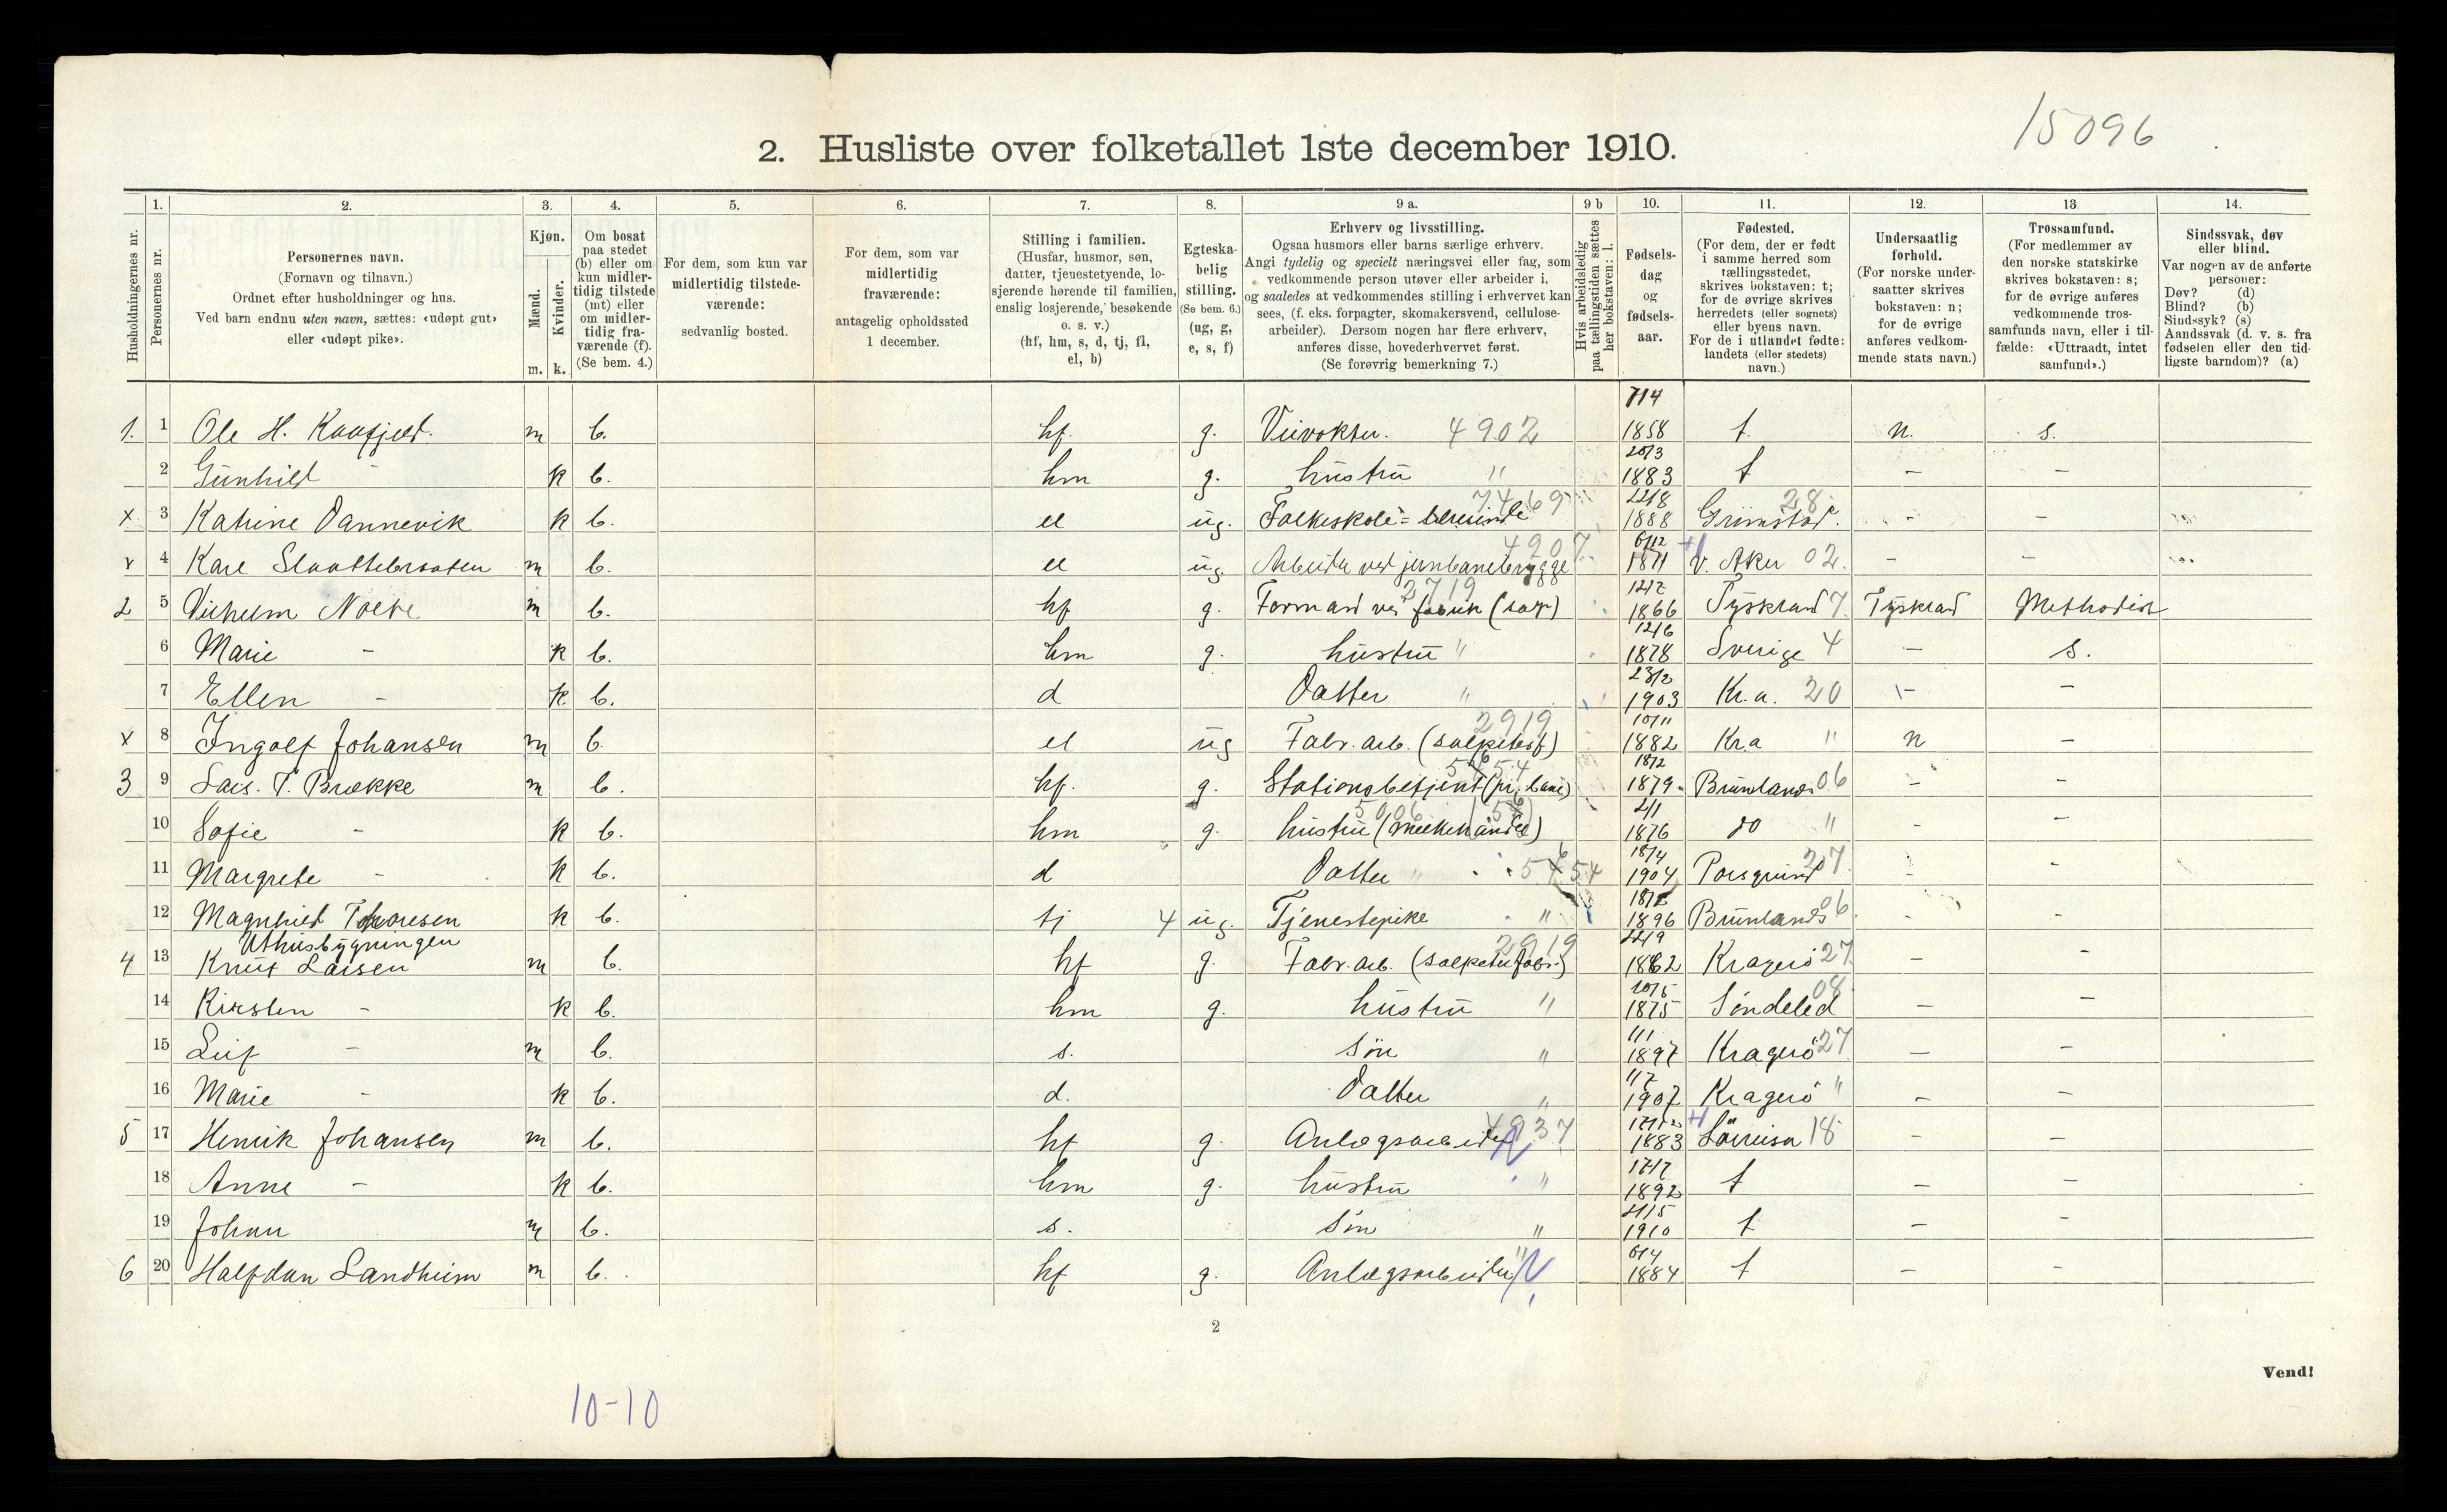 15096
2. Husliste over folketallet 1ste december 1910.
Husholdningernes nr.
1. Personernes nr.
2. Personernes navn.
(Fornavn og tilnavn.)
Ordnet efter husholdninger og hus.
Ved barn endnu uten navn, sættes: «udøpt gut»
eller «udøpt pike».
3. Kjøn.
Mænd. m.
Kvinder. k.
4. Om bosat
paa stedet
(b) eller om
kun midler-
tidig tilstede
(mt) eller
om midler-
tidig fra-
værende (f).
(Se bem. 4.)
5. For dem, som kun var
midlertidig tilstede-
værende:
sedvanlig bosted.
6. For dem, som var
midlertidig
fraværende:
antagelig opholdssted
1 december.
7. Stilling i familien.
(Husfar, husmor, søn,
datter, tjenestetyende, lo-
sjerende hørende til familien,
enslig losjerende, besøkende
o. s. v.)
(hf, hm, s, d, tj, fl,
el, b)
8. Egteska-
belig
stilling.
(Se bem. 6.)
(ug, g,
e, s, f)
9 a. Erhverv og livsstilling.
Ogsaa husmors eller barns særlige erhverv.
Angi tydelig og specielt næringsvei eller fag, som
vedkommende person utøver eller arbeider i,
og saaledes at vedkommendes stilling i erhvervet kan
sees, (f. eks. forpagter, skomakersvend, cellulose-
arbeider). Dersom nogen har flere erhverv,
anføres disse, hovederhvervet først.
(Se forøvrig bemerkning 7.)
9 b Hvis arbeidsledig
paa tællingstiden sættes
her bokstaven: l.
10. Fødsels-
dag
og
fødsels-
aar.
11. Fødested.
(For dem, der er født
i samme herred som
tællingsstedet,
skrives bokstaven: t;
for de øvrige skrives
herredets (eller sognets)
eller byens navn.
For de i utlandet fødte:
landets (eller stedets)
navn.)
12. Undersaatlig
forhold.
(For norske under-
saatter skrives
bokstaven: n;
for de øvrige
anføres vedkom-
mende stats navn.)
13. Trossamfund.
(For medlemmer av
den norske statskirke
skrives bokstaven: s;
for de øvrige anføres
vedkommende tros-
samfunds navn, eller i til-
fælde: «Uttraadt, intet
samfund».)
14. Sindssvak, døv
eller blind.
Var nogen av de anførte
personer:
Døv? (d)
Blind? (b)
Sindssyk? (s)
Aandssvak (d. v. s. fra
fødselen eller den tid-
ligste barndom)? (a)
1. 1 Ole H. m b. hf. g. Veivokter. 4902 7/4 1858 t. n. s.
2 Gunhild - k b. hm g. hustru " 20/3 1883 t - -
x 3 Katrine Dannevik k b. el ug. Folkeskole= lærerinde 7469 22/8 1888 Grimstad. 28 - -
v 4 Karl Slaattebraaten m b. el ug. Arbeider ved jernbanebrygge 4207 6/12 1871 V. Aker 02 - -
2 5 Vilhelm m b. hf g. Formand ved fabrik 2719 12/7 1866 Tyskland 7 Tyskland Methodist
6 Marie - k b. hm g. hustru " 12/6 1878 Sverige 4 - s.
7 Ellen - k b. d Datter " 23/2 1903 Kr.a. 20 - -
x 8 Ingolf Johansen m b. el ug Fabr. arb. 2919 10/11 1882 Kr.a " n -
3 9 Lars. T. Brække m b. hf. g. Stationsbetjent (pr. bane) 18/2 1879 Brunlanæs 06 - -
10 Sofie - k b. hm g. hustru (melkehandel) 2/1 1876 do " - -
11 Margrete - k b. d Datter " 18/4 1904 Porsgrund 207 - -
12 Magnhild Thoresen k b. tj 4 ug. Tjenestepike " 1896 Brunlanæs 06 - -
Uthusbygningen
4 13 Knut Larsen m b. hf g. Fabr. arb. (salpeterfabr.) 2919 22/9 1862 Kragerö 27 - -
14 Kirsten - k b. hm g. hustru " 20/5 1875 Söndeled 08 - -
15 Leif - m b. s. Sön " 1/1 1897 Kragerö 27 - -
16 Marie - k b. d. Datter " 1/7 1907 Kragerö " - -
5 17 Henrik Johansen m b. hf g. Anlægsarbeider 4937 1883 18 - -
18 Anne - k b. hm g. hustru " 17/7 1892 t - -
19 Johan m b. s. Sön " 1910 t - -
6 20 Halfdan Landheim m b. hf g. Anlægsarbeider " 6/4 1884 t - -
2
Vend!
10-10